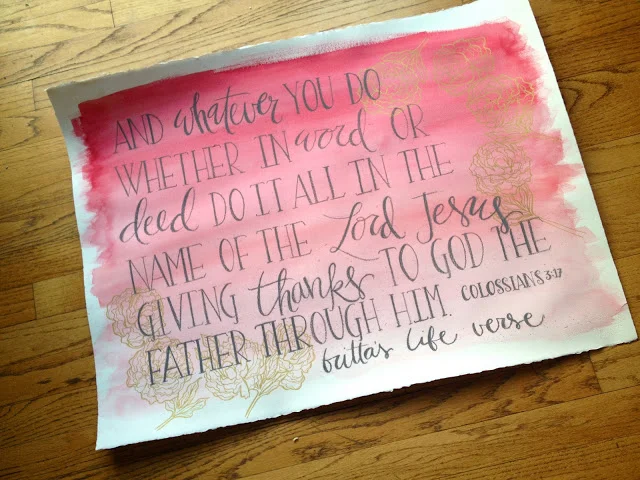 AND whatever YOU DO
WHETHER IN word OR
deed DO IT ALL IN THE
NAME OF THE Lord Jesus
GIVING thanks TO GOD THE
FATHER THROUGH HIM. COLOSSIANS 3:17
britta's life verse